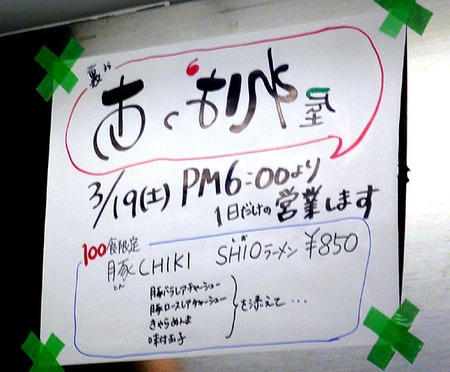 3/19(土) PM6:00より
1日だけの営業します
100食限定
豚CHIKI SHIOラーメン ¥850
とん しお
豚バラレアチャーシュー
豚ロースレアチャーシュー
きゃらめんま
味付玉子
を添えて…